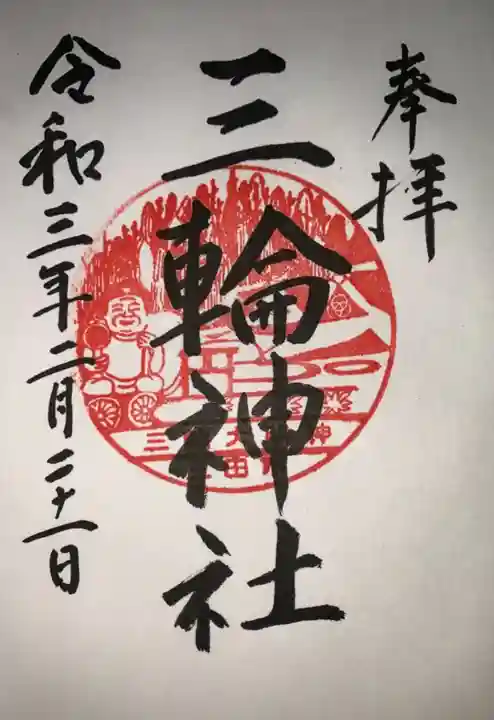 奉拝
三輪神社
令和三年二月二十一日